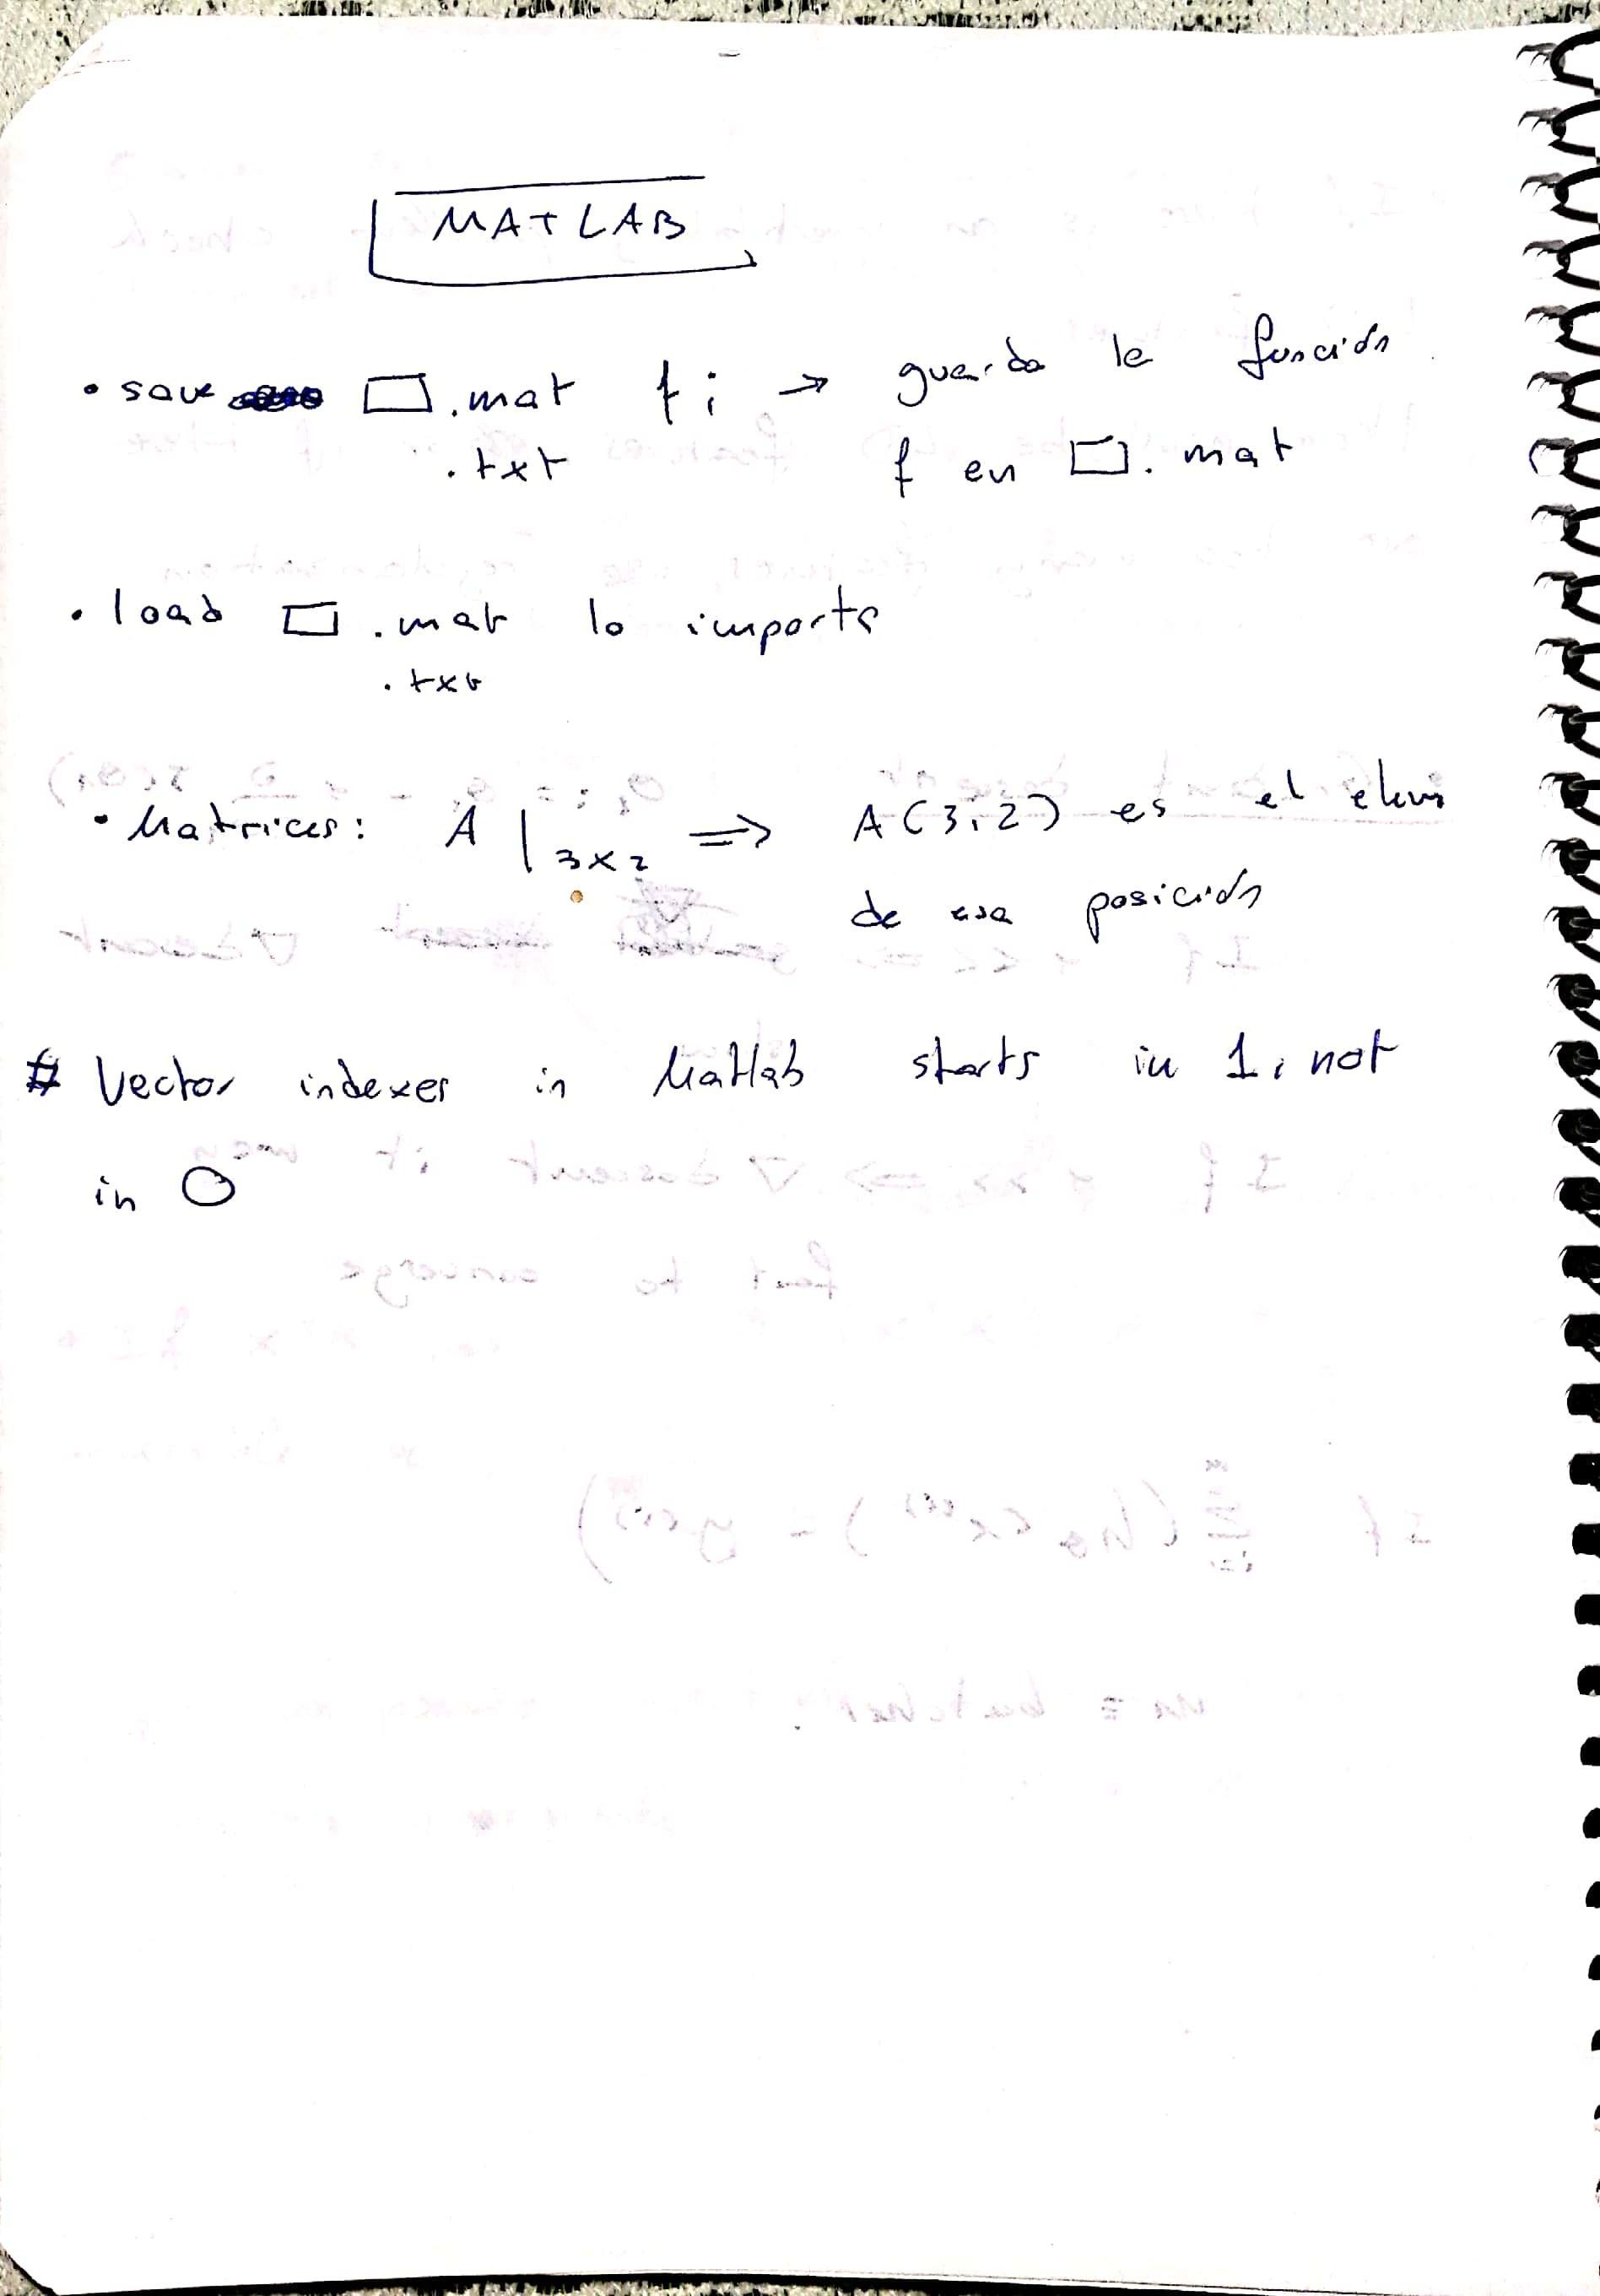 MATLAB
• save □.mat f; → guarda la función
.txt f en □.mat
• load □.mat lo importa
.txt
• Matrices: A |3x2 ⇒ A(3,2) es el elem
de esa posición
# Vector indexes in Matlab starts in 1, not
in 0